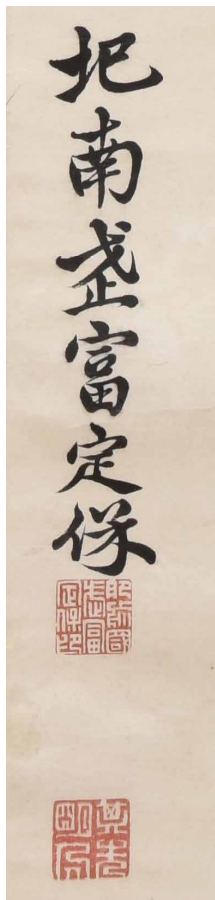 圯南武富定保